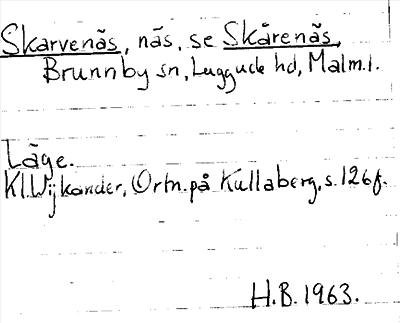 Skarvenäs, näs, se Skårenäs,
Brunnby sn, Luggude hd, Malm.l.
Läge.
Kl.Wijkander, Ortn. på Kullaberg, s. 126f.
H.B. 1963.